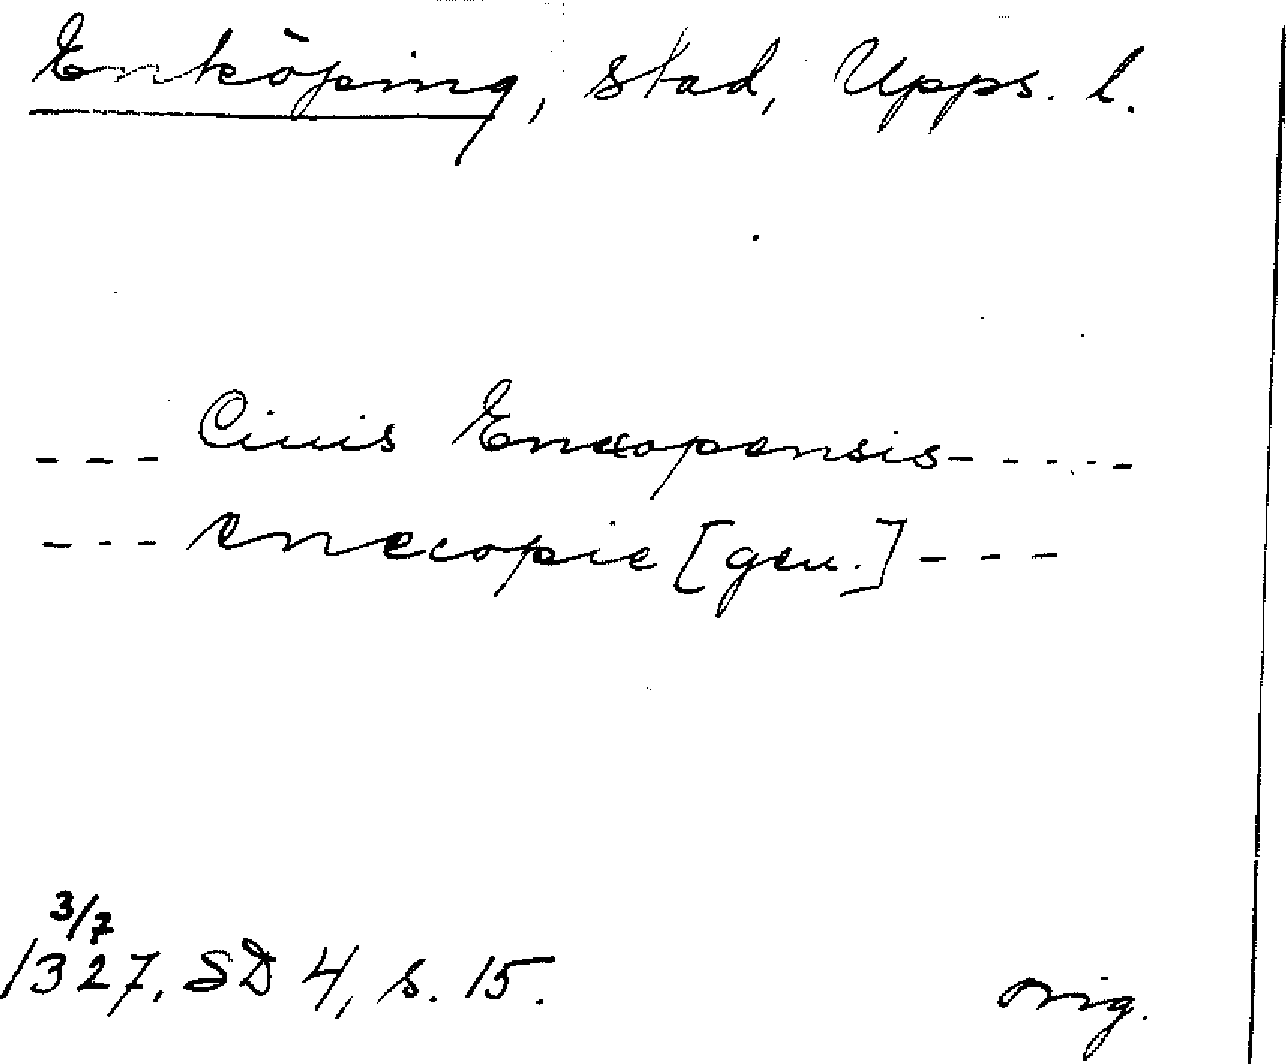 Enköping, stad, Upps. l.
--- Ciuis Enecopensis-----
--- enecopie [gen.]---
3/7
1327, SD 4, s. 15.
orig.